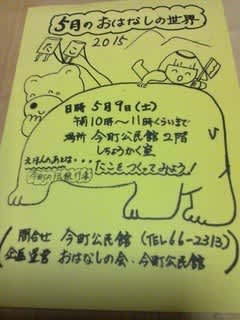 5月のおはなしの世界
2015
たこ
日時 5月9日(土)
午前10時〜11時くらいまで
場所 今町公民館2階
しちょうかく室
えほんのあとは・・・
たこをつくってみよう!
今町の伝統行事
問合せ 今町公民館 (TEL66-2313)
企画運営 おはなしの会・今町公民館